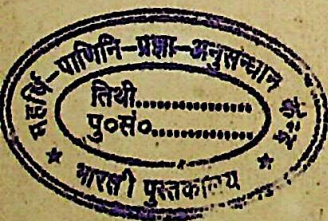 महर्षि-पाणिनि-प्रज्ञा-अनुसन्धान
तिथी..................
पु०सं०................
* भारती पुस्तकालय *